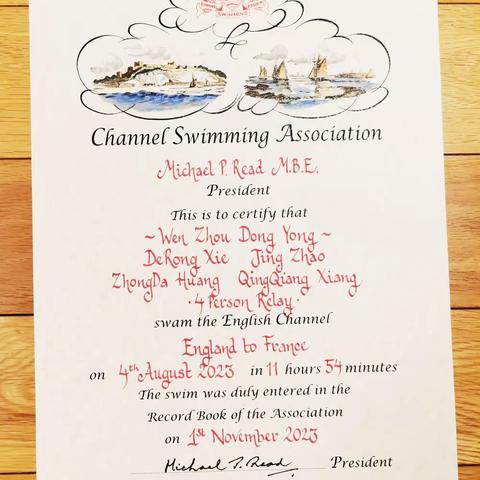 SWIMMING
Channel Swimming Association
Michael P. Read M.B.E.
President
This is to certify that
~ Wen Zhou Dong Yong ~
DeRong Xie Jing Zhao
ZhongDa Huang QingQiang Xiang
· 4 Person Relay ·
swam the English Channel
England to France
on 4th August 2023 in 11 hours 54 minutes
The swim was duly entered in the
Record Book of the Association
on 1st November 2023
Michael P. Read President